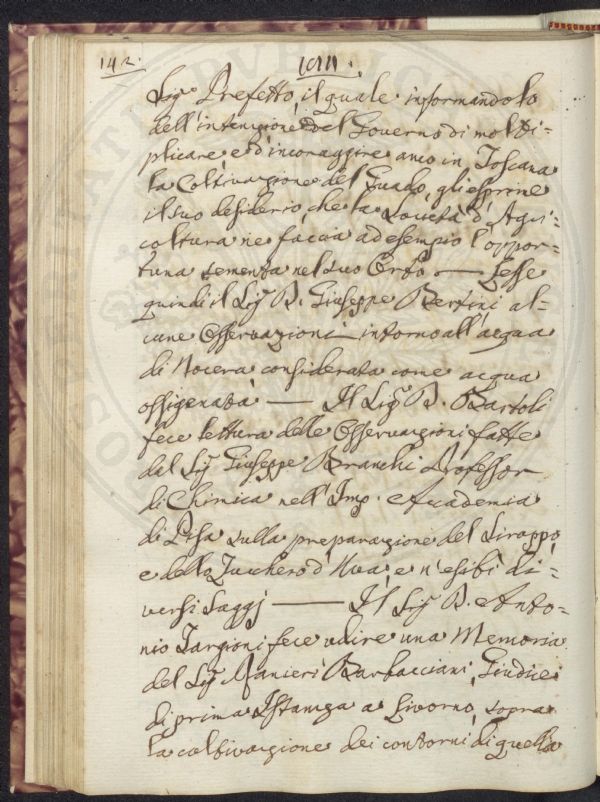 142.
Sig.e Prefetto, il quale informandolo
dell'intenzione del Governo di molti=
plicare e d'incoraggire anco in Toscana
la Coltivazione del Guado, gli esprime
il suo desiderio, che la Società d'Agri=
coltura ne faccia ad esempio l'oppor=
tuna sementa nel suo Orto — Lesse
quindi il Sig. D. Giuseppe Bertini al=
cune Osservazioni intorno all'acqua
di Nocera considerata come acqua
ossigenata — Il Sig. D. Bartoli
fece lettura delle Osservazioni fatte
dal Sig. Giuseppe Branchi Professor
di Chimica nell'Imp. Accademia
di Pisa sulla preparazione del Siroppo,
e dello Zucchero d'Uva, e n'esibì di=
versi Saggj — Il Sig. D. Anto=
nio Targioni fece udire una Memoria
del Sig. Ranieri Barbacciani, Giudice
di prima Istanza a Livorno, sopra
la coltivazione dei contorni di quella